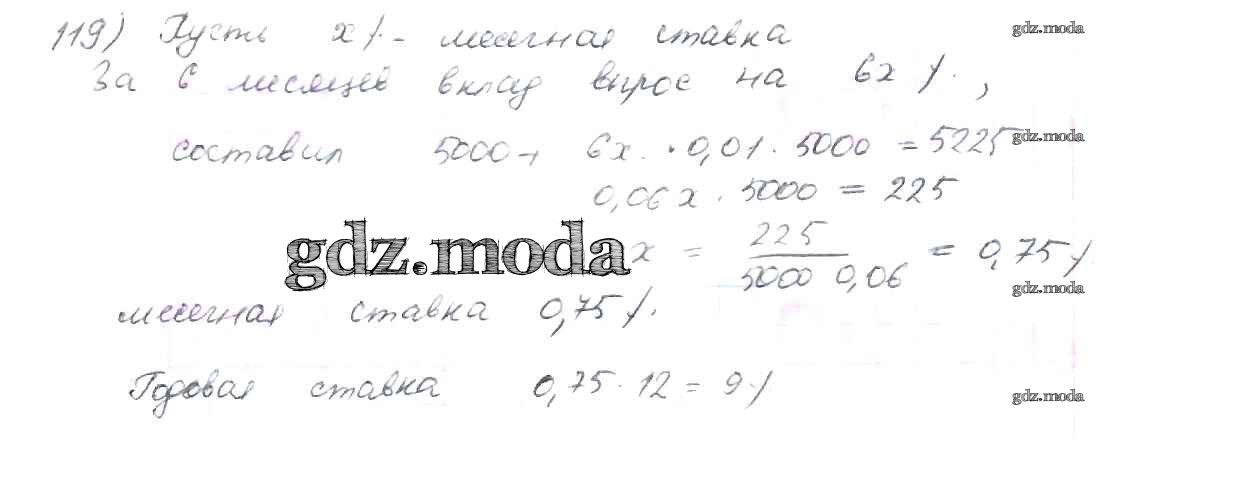 119) Пусть x % - месячная ставка gdz.moda
За 6 месяцев вклад вырос на 6x %,
составил 5000 + 6x · 0,01 · 5000 = 5225 gdz.moda
0,06x · 5000 = 225
gdz.moda x = 225 / 5000 0,06 = 0,75 %
gdz.moda
месячная ставка 0,75 %.
Годовая ставка 0,75 · 12 = 9 % gdz.moda